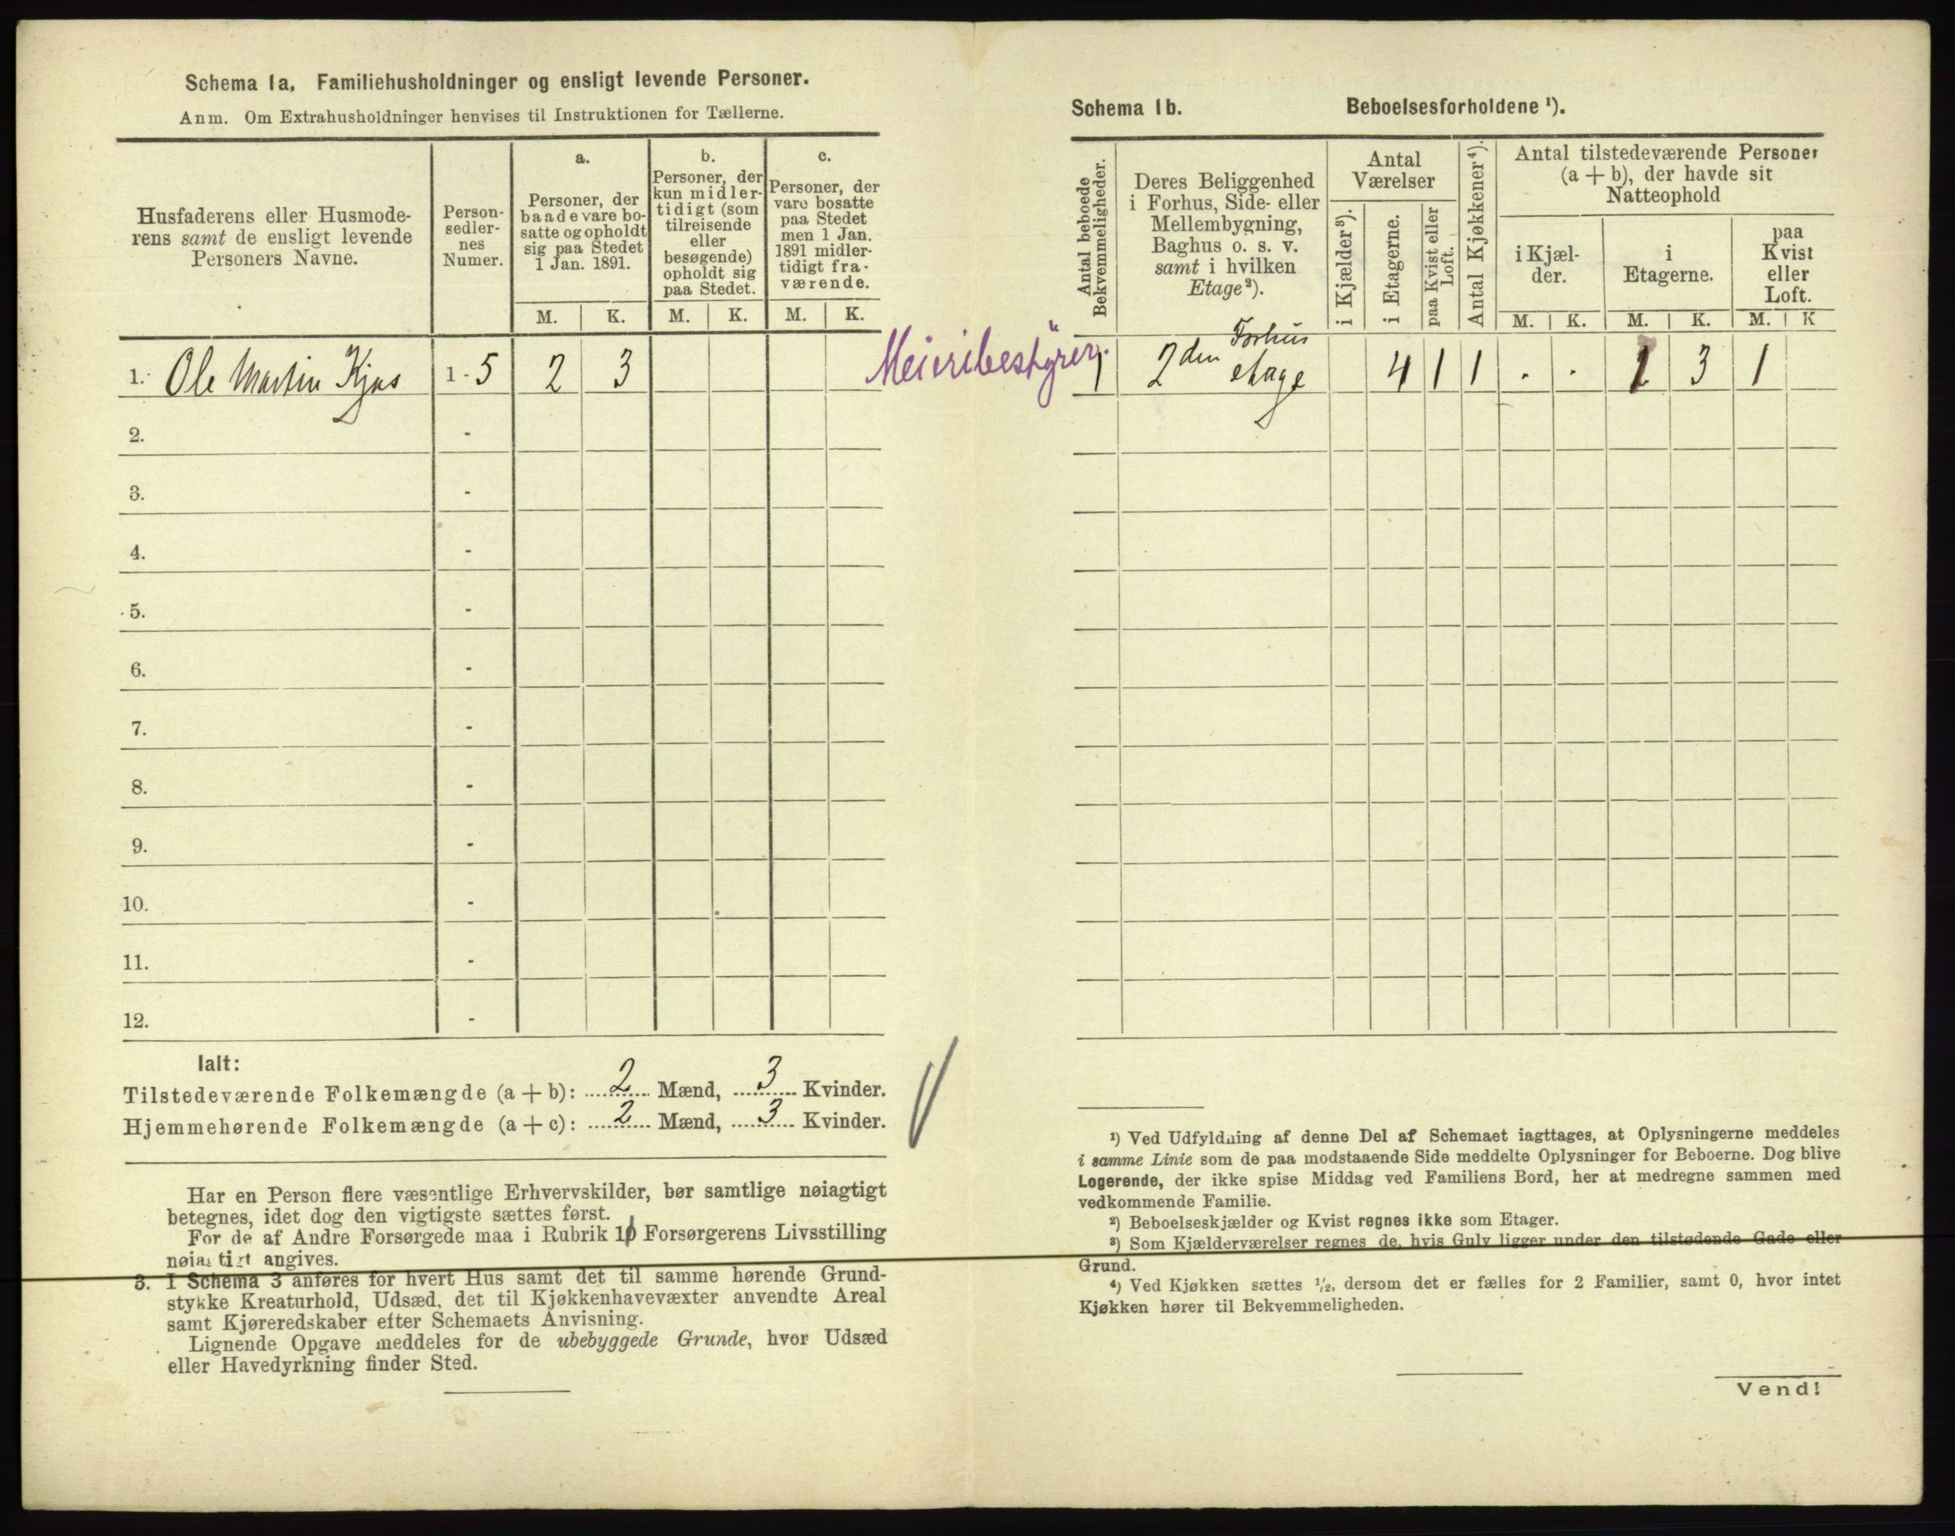 Schema 1a, Familiehusholdninger og ensligt levende Personer.
Anm. Om Extrahusholdninger henvises til Instruktionen for Tællerne.
Husfaderens eller Husmode-
rens samt de ensligt levende
Personers Navne.
Person-
sedler-
nes
Numer.
a.
Personer, der
baade vare bo-
satte og opholdt
sig paa Stedet
1 Jan. 1891.
b.
Personer, der
kun midler-
tidigt (som
tilreisende
eller
besøgende)
opholdt sig
paa Stedet.
c.
Personer, der
vare bosatte
paa Stedet
men 1 Jan.
1891 midler-
tidigt fra-
værende.
M. K. M. K. M. K.
1. Ole Martin Kjos 1 - 5 2 3
2. -
3. -
4. -
5. -
6. -
7. -
8. -
9. -
10. -
11. -
12. -
Ialt:
Tilstedeværende Folkemængde (a + b): 2 Mænd, 3 Kvinder.
Hjemmehørende Folkemængde (a + c): 2 Mænd, 3 Kvinder.
Har en Person flere væsentlige Erhvervskilder, bør samtlige nøiagtigt
betegnes, idet dog den vigtigste sættes først.
For de af Andre Forsørgede maa i Rubrik 10 Forsørgerens Livsstilling
nøiagtigt angives.
3. I Schema 3 anføres for hvert Hus samt det til samme hørende Grund-
stykke Kreaturhold, Udsæd, det til Kjøkkenhavevæxter anvendte Areal
samt Kjøreredskaber efter Schemaets Anvisning.
Lignende Opgave meddeles for de ubebyggede Grunde, hvor Udsæd
eller Havedyrkning finder Sted.
Schema 1b. Beboelsesforholdene ¹).
Antal beboede
Bekvemmeligheder.
Deres Beliggenhed
i Forhus, Side- eller
Mellembygning,
Baghus o. s. v.
samt i hvilken
Etage²).
Antal
Værelser
i Kjælder³).
i Etagerne.
paa Kvist eller
Loft.
Antal Kjøkkener⁴).
Antal tilstedeværende Personer
(a + b), der havde sit
Natteophold
i Kjæl-
der.
i
Etagerne.
paa
Kvist
eller
Loft.
M. K. M. K. M. K
Meieribestyrer.
Forhus
1 2den etage 4 1 1 . . 1 3 1
¹) Ved Udfyldning af denne Del af Schemaet iagttages, at Oplysningerne meddeles
i samme Linie som de paa modstaaende Side meddelte Oplysninger for Beboerne. Dog blive
Logerende, der ikke spise Middag ved Familiens Bord, her at medregne sammen med
vedkommende Familie.
²) Beboelseskjælder og Kvist regnes ikke som Etager.
³) Som Kjælderværelser regnes de, hvis Gulv ligger under den tilstødende Gade eller
Grund.
⁴) Ved Kjøkken sættes ¹/₂, dersom det er fælles for 2 Familier, samt 0, hvor intet
Kjøkken hører til Bekvemmeligheden.
Vend!